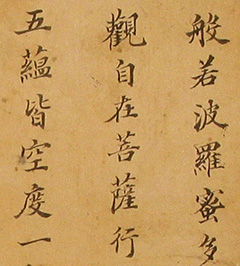 般若波羅蜜多
觀自在菩薩行
五蘊皆空度一